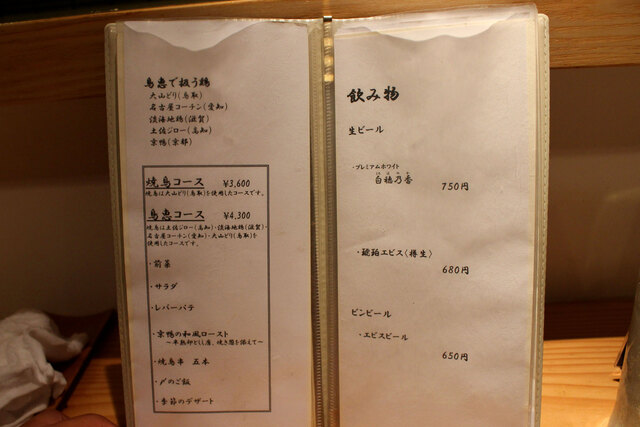 鳥恵で扱う鶏
大山どり(鳥取)
名古屋コーチン(愛知)
淡海地鶏(滋賀)
土佐ジロー(高知)
京鴨(京都)
焼鳥コース ¥3,600
焼鳥は大山どり(鳥取)を使用したコースです。
鳥恵コース ¥4,300
焼鳥は土佐ジロー(高知)・淡海地鶏(滋賀)・
名古屋コーチン(愛知)・大山どり(鳥取)を
使用したコースです。
・前菜
・サラダ
・レバーパテ
・京鴨の和風ロースト
〜半熟卵とじ唐、焼き葱を添えて〜
・焼鳥串 五本
・〆のご飯
・季節のデザート
飲み物
生ビール
・プレミアムホワイト
白穂乃香
750円
・琥珀ヱビス〈樽生〉
680円
ビンビール
・ヱビスビール
650円